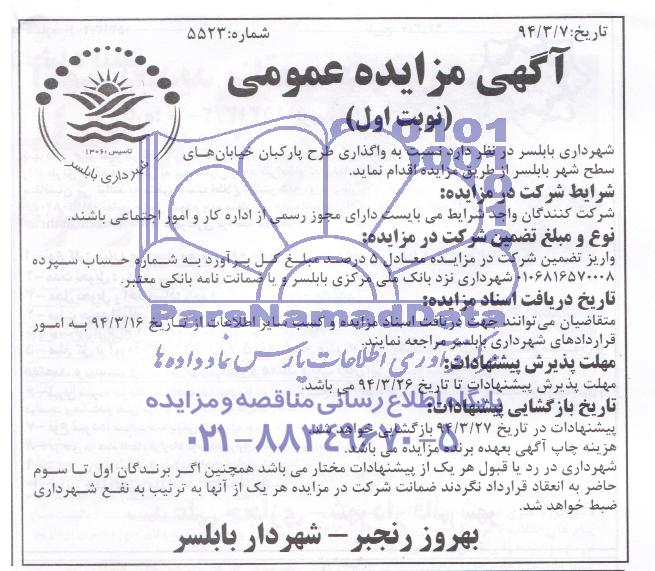 تاریخ:۹۴/۳/۷
شماره:۵۵۲۳
آگهی مزایده عمومی
(نوبت اول)
تاسیس:۱۳۰۶
شهرداری بابلسر
شهرداری بابلسر در نظر دارد نسبت به واگذاری طرح پارکبان خیابان‌های
سطح شهر بابلسر از طریق مزایده اقدام نماید.
شرایط شرکت در مزایده:
شرکت کنندگان واجد شرایط می بایست دارای مجوز رسمی از اداره کار و امور اجتماعی باشند.
نوع و مبلغ تضمین شرکت در مزایده:
واریز تضمین شرکت در مزایده معادل ۵ درصد مبلغ کل برآورد به شماره حساب سپرده
۰۱۰۶۸۱۶۵۷۰۰۰۸ شهرداری نزد بانک ملی مرکزی بابلسر و یا ضمانت نامه بانکی معتبر.
تاریخ دریافت اسناد مزایده:
متقاضیان می‌توانند جهت دریافت اسناد مزایده و کسب سایر اطلاعات از تاریخ ۹۴/۳/۱۶ به امور
قراردادهای شهرداری بابلسر مراجعه نمایند.
مهلت پذیرش پیشنهادات:
مهلت پذیرش پیشنهادات تا تاریخ ۹۴/۳/۲۶ می باشد.
تاریخ بازگشایی پیشنهادات:
پیشنهادات در تاریخ ۹۴/۳/۲۷ بازگشایی خواهد شد.
هزینه چاپ آگهی بعهده برنده مزایده می باشد.
شهرداری در رد یا قبول هر یک از پیشنهادات مختار می باشد همچنین اگر برندگان اول تا سوم
حاضر به انعقاد قرارداد نگردند ضمانت شرکت در مزایده هر یک از آنها به ترتیب به نفع شهرداری
ضبط خواهد شد.
بهروز رنجبر – شهردار بابلسر
ParsNamadData
فن آوری اطلاعات پارس نماد داده‌ها
پایگاه اطلاع رسانی مناقصه و مزایده
۰۲۱-۸۸۳۴۹۶۷۰-۵